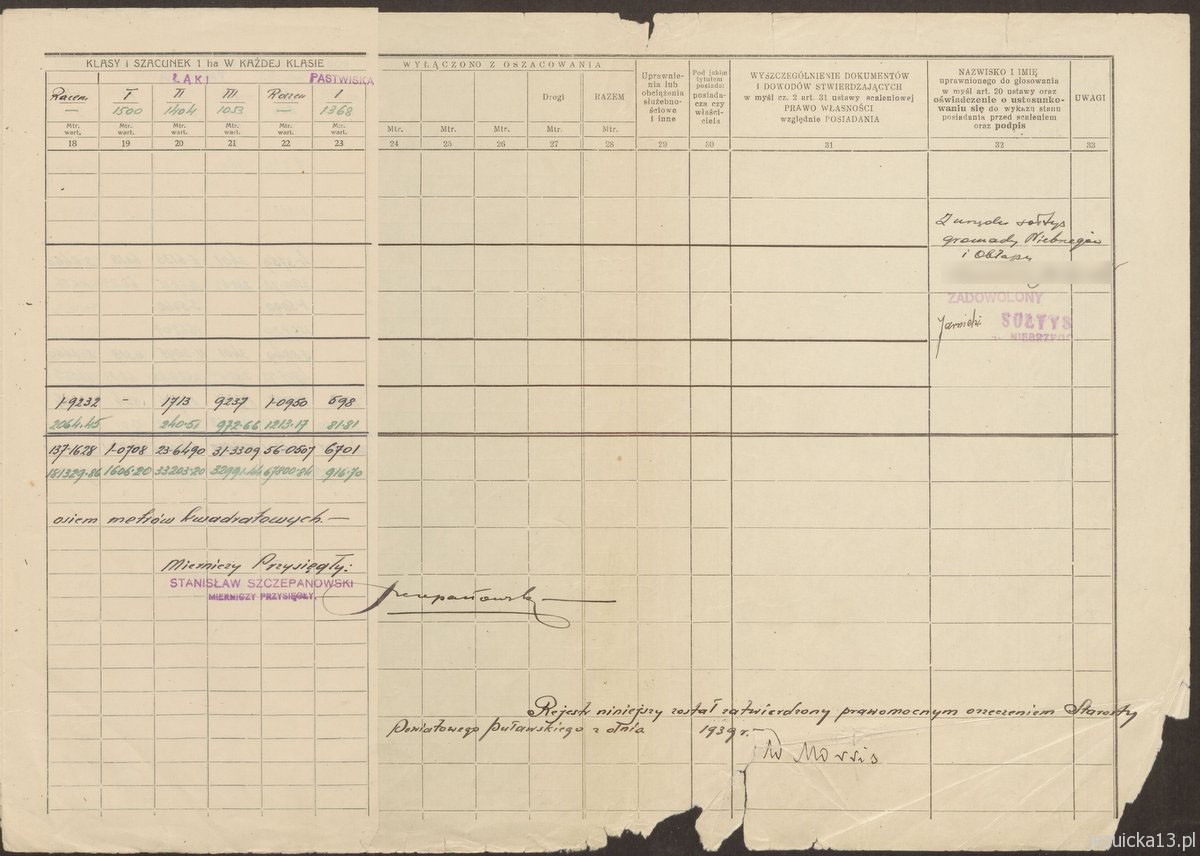 KLASY i SZACUNEK 1 ha W KAŻDEJ KLASIE
ŁĄKI PASTWISKA
Razem I II III Razem I
— 1500 1404 1053 — 1368
Mtr. wart. Mtr. wart. Mtr. wart. Mtr. wart. Mtr. wart. Mtr. wart.
18 19 20 21 22 23
WYŁĄCZONO Z OSZACOWANIA
Drogi RAZEM
Mtr. Mtr. Mtr. Mtr. Mtr.
24 25 26 27 28
Uprawnie-
nia lub
obciążenia
służebno-
ściowe
i inne
29
Pod jakim
tytułem
posiada:
posiada-
cza czy
właści-
ciela
30
WYSZCZEGÓLNIENIE DOKUMENTÓW
I DOWODÓW STWIERDZAJĄCYCH
w myśl cz. 2 art. 31 ustawy scaleniowej
PRAWO WŁASNOŚCI
względnie POSIADANIA
31
NAZWISKO I IMIĘ
uprawnionego do głosowania
w myśl art. 20 ustawy oraz
oświadczenie o ustosunko-
waniu się do wykazu stanu
posiadania przed scaleniem
oraz podpis
32
UWAGI
33
Z urzędu sołtys
gromady
i Obłapy
ZADOWOLONY
SOŁTYS
1·9232 - 1713 9237 1·0950 598
2064.45 240·51 972·66 1213·17 81·81
137·1628 1·0708 23·6490 31·3309 56·0507 6701
181329·86 1606·20 33203·20 32991·44 67800·84 916·70
osiem metrów kwadratowych. —
Mierniczy Przysięgły:
STANISŁAW SZCZEPANOWSKI
MIERNICZY PRZYSIĘGŁY.
Szczepanowski
Rejestr niniejszy został zatwierdzony prawomocnym orzeczeniem Starosty
Powiatowego Puławskiego z dnia 1939 r.